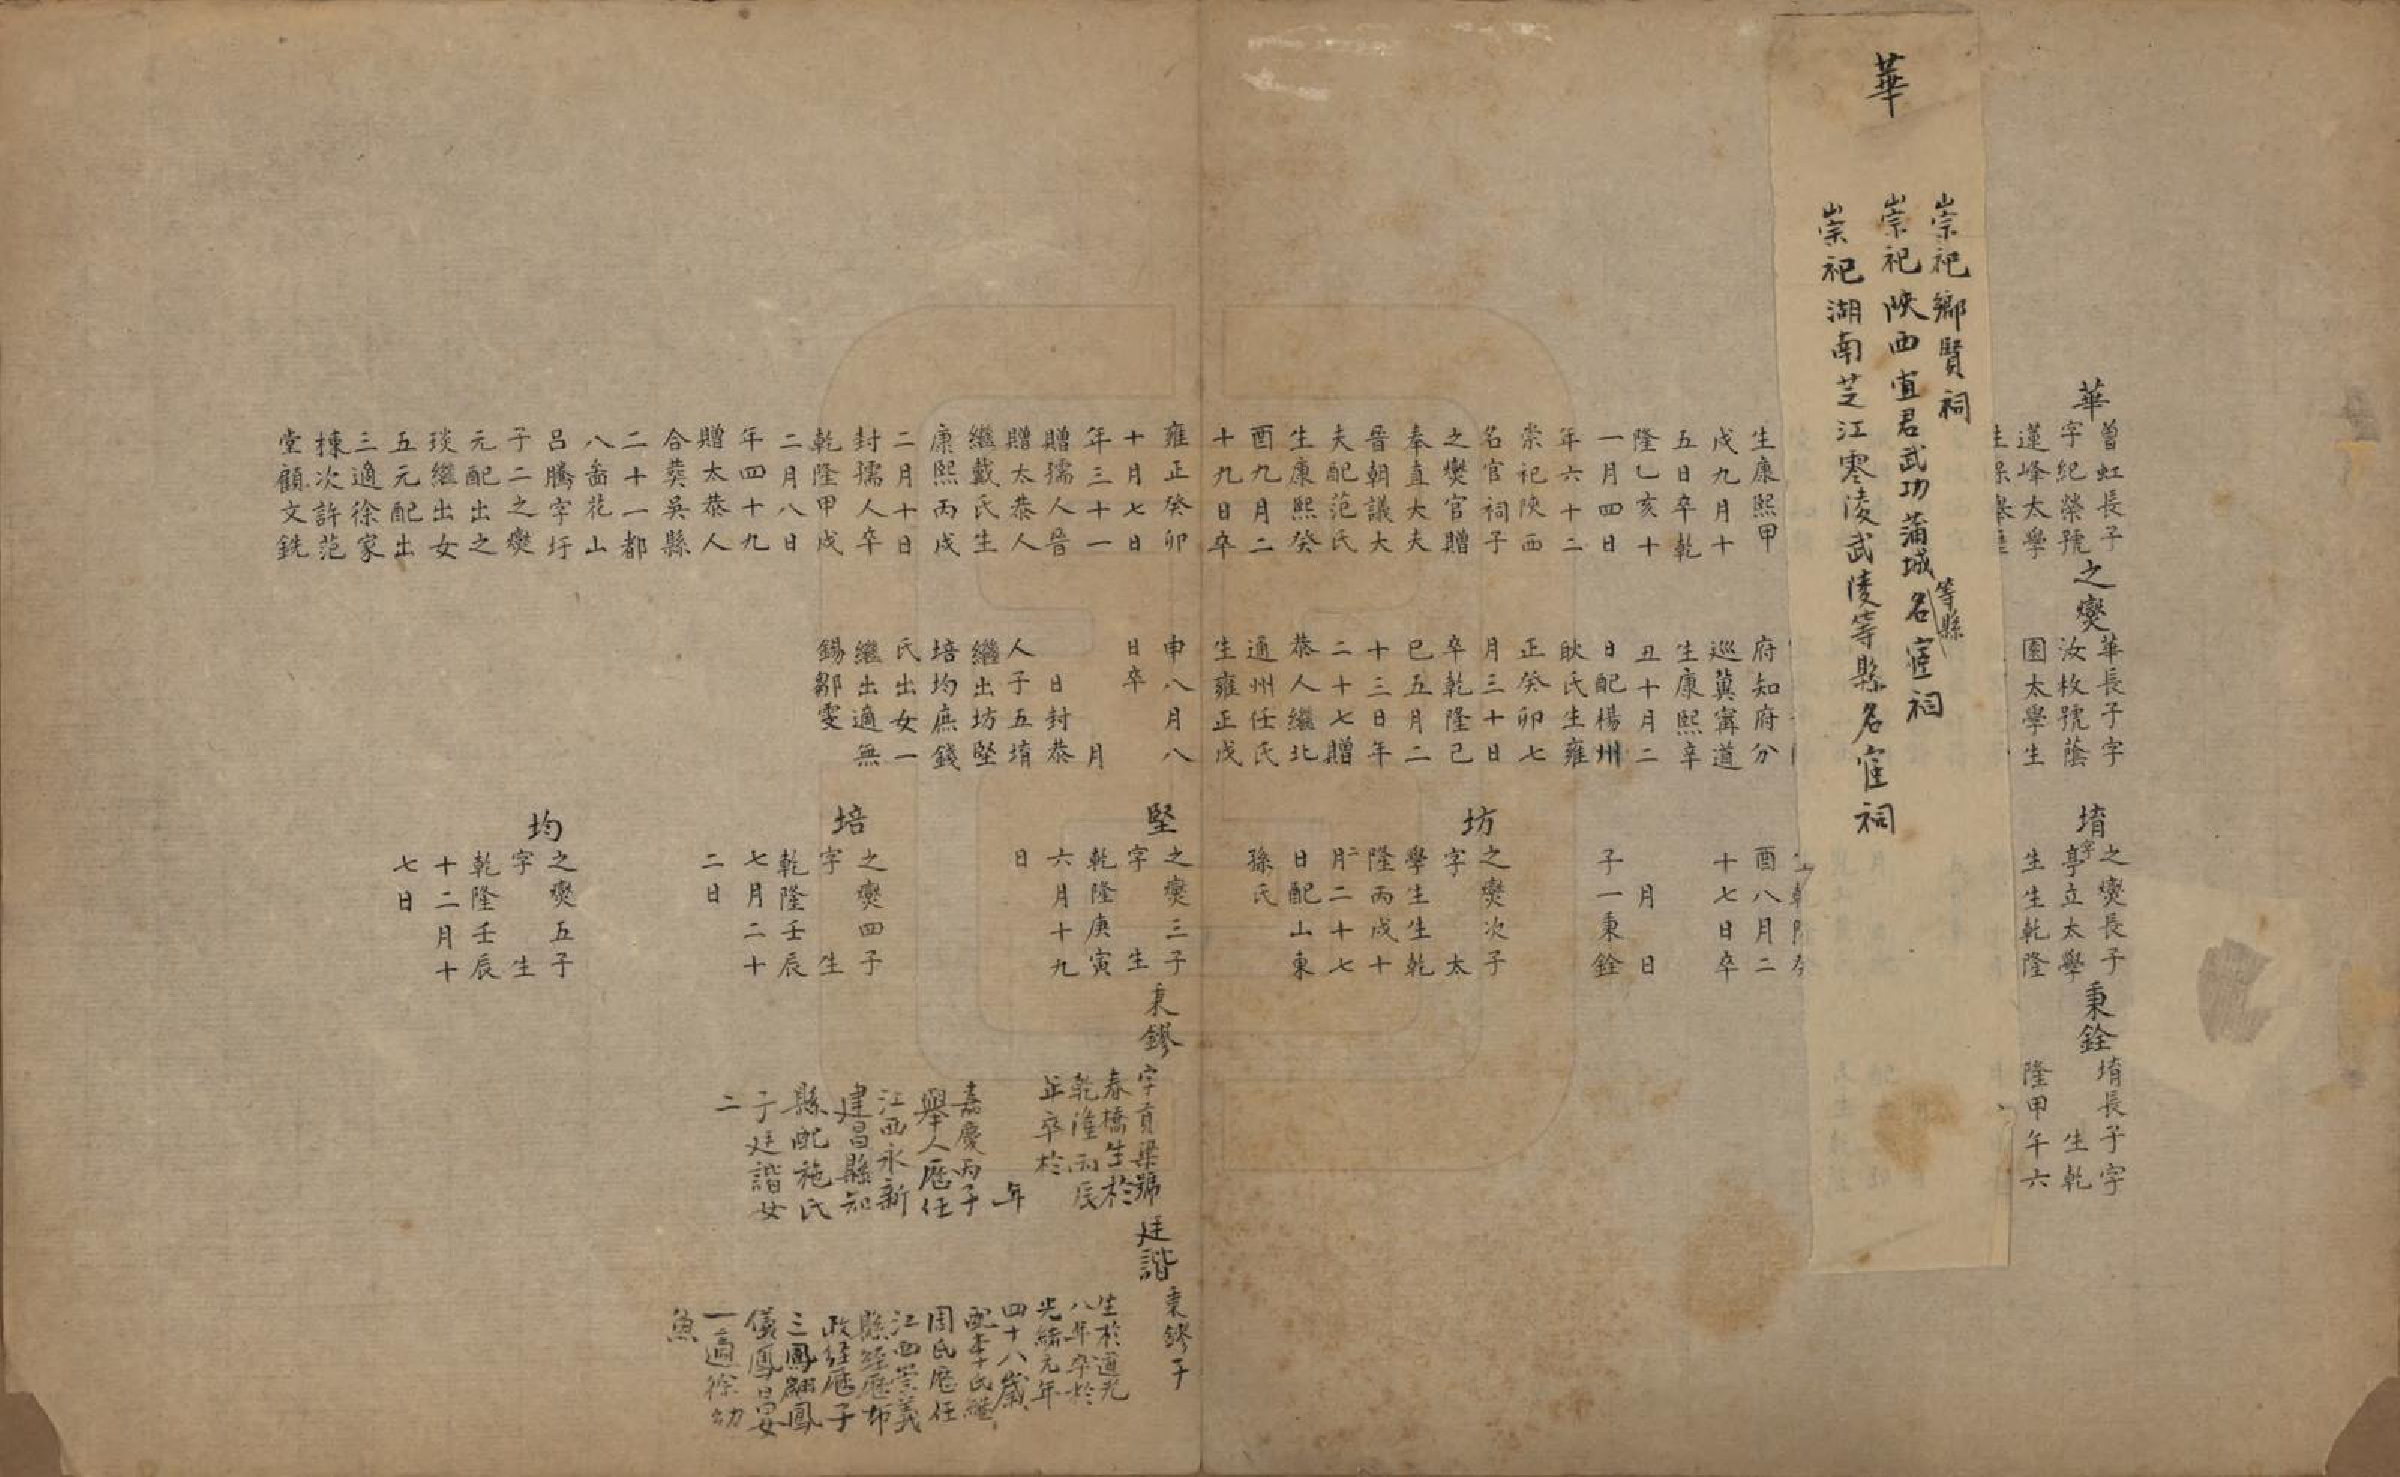 華
崇祀鄉賢祠
崇祀陝西宜君武功蒲城等縣名宦祠
崇祀湖南芝江零陵武陵等縣名宦祠
華
曾虹長子
字紀榮號
蓮峰太學
生康熙甲
戌九月十
五日卒乾
隆乙亥十
一月四日
年六十二
崇祀陝西
名宦祠子
之爕官贈
奉直大夫
晉朝議大
夫配范氏
生康熙癸
酉九月二
十九日卒
雍正癸卯
十月七日
年三十一
贈孺人晉
贈太恭人
繼戴氏生
康熙丙戌
二月十日
封孺人卒
乾隆甲戌
二月八日
年四十九
贈太恭人
合葵吳縣
二十一都
八啚花山
呂騰字圩
子二之爕
元配出之
琰繼出女
五元配出
三適徐家
棟次許范
堂顧文銑
之爕
華長子字
汝枚號蔭
園太學生
府知府分
巡冀寧道
生康熙辛
丑十月二
日配楊州
耿氏生雍
正癸卯七
月三十日
卒乾隆己
巳五月二
十三日年
二十七贈
恭人繼北
通州任氏
生雍正戊
申八月八
日卒
月
日封恭
人子五堉
繼出坊堅
培均庶錢
氏出女一
繼出適無
錫鄒雯
堉
之爕長子
字亭立太學
生生乾隆
酉八月二
十七日卒
月日
子一秉銓
坊
之爕次子
字太
學生生乾
隆丙戌十
二月二十七
日配山東
孫氏
堅
之爕三子
字生
乾隆庚寅
六月十九
日
培
之爕四子
字生
乾隆壬辰
七月二十
二日
均
之爕五子
字生
乾隆壬辰
十二月十
七日
秉銓
堉長子字
生乾
隆甲午六
秉鏐
字貢梁號
春橋生於
乾隆丙辰
年卒於
年
嘉慶丙子
舉人歷任
江西永新
建昌縣知
縣配施氏
子廷諧女
二
廷諧
秉鏐子
生於道光
八年卒於
光緒元年
四十八歲
配李氏繼
周氏歷任
江西崇義
縣經歷布
政經歷子
三鳳翽鳳
儀鳳昌女
一適徐幼
魚